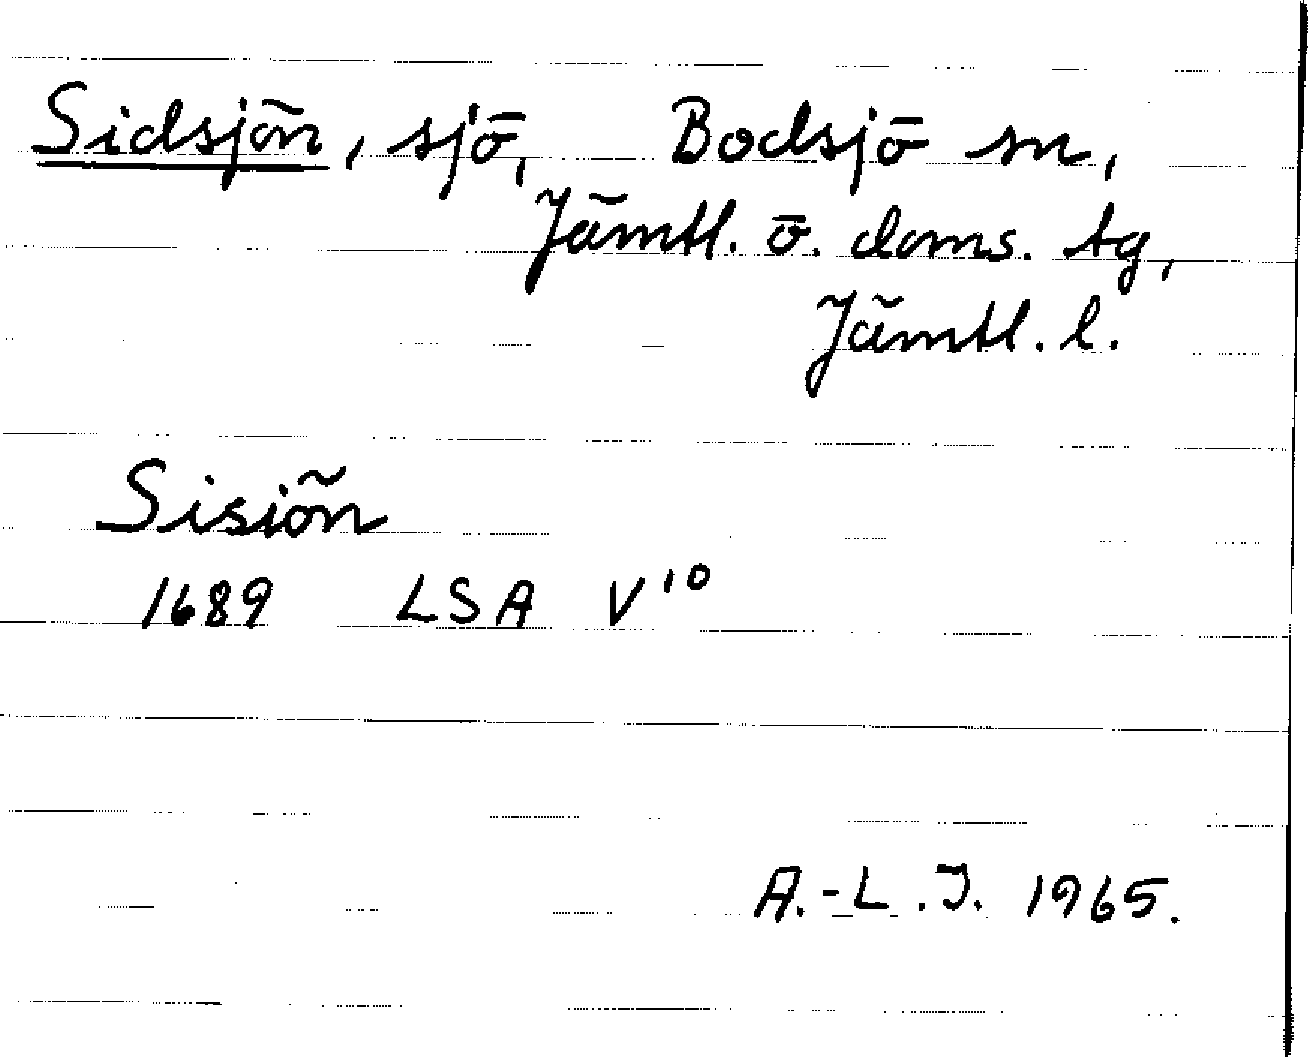 Sidsjön, sjö, Bodsjö sn,
Jämtl. ö. doms. tg,
Jämtl. l.
Sisiön
1689 LSA V¹⁰
A.-L.J. 1965.